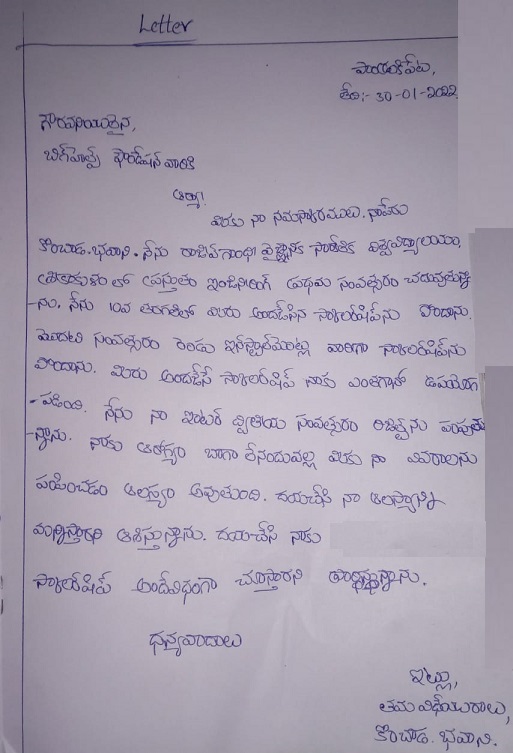 Letter
పాయకపేట,
తేది:- 30-01-2022
గౌరవనియులైన,
బిగ్‌హెల్ప్ ఫౌండేషన్ వారికి
ఆర్యా!
మీకు నా నమస్కారములు. నాపేరు
కొంచాడ. భవాని. నేను రాజీవ్‌గాంధీ వైజ్ఞానిక సాంకేతిక విశ్వవిద్యాలయం,
శ్రీకాకుళం లో ప్రస్తుతం ఇంజినీరింగ్ ప్రథమ సంవత్సరం చదువుతున్నా
-ను. నేను 10వ తరగతిలో మీరు అందజేసిన స్కాలర్‌షిప్‌ను పొందాను.
మొదటి సంవత్సరం రెండు ఇన్‌స్టాల్‌మెంట్లు వారిగా స్కాలర్‌షిప్‌ను
పొందాను. మీరు అందజేసే స్కాలర్‌షిప్ నాకు ఎంతగానో ఉపయోగ
-పడింది. నేను నా ఇంటర్ ద్వితీయ సంవత్సరం రిజల్ట్‌ను పంపుతు
-న్నాను. నాకు ఆరోగ్యం బాగా లేనందువల్ల మీకు నా వివరాలను
పంపించడం ఆలస్యం అవుతుంది. దయచేసి నా ఆలస్యాన్ని
మన్నిస్తారని ఆశిస్తున్నాను. దయచేసి నాకు
స్కాలర్‌షిప్ అందేవిధంగా చూస్తారని ప్రార్థిస్తున్నాను.
ధన్యవాదాలు
ఇట్లు,
తమ విధేయురాలు,
కొంచాడ. భవాని.